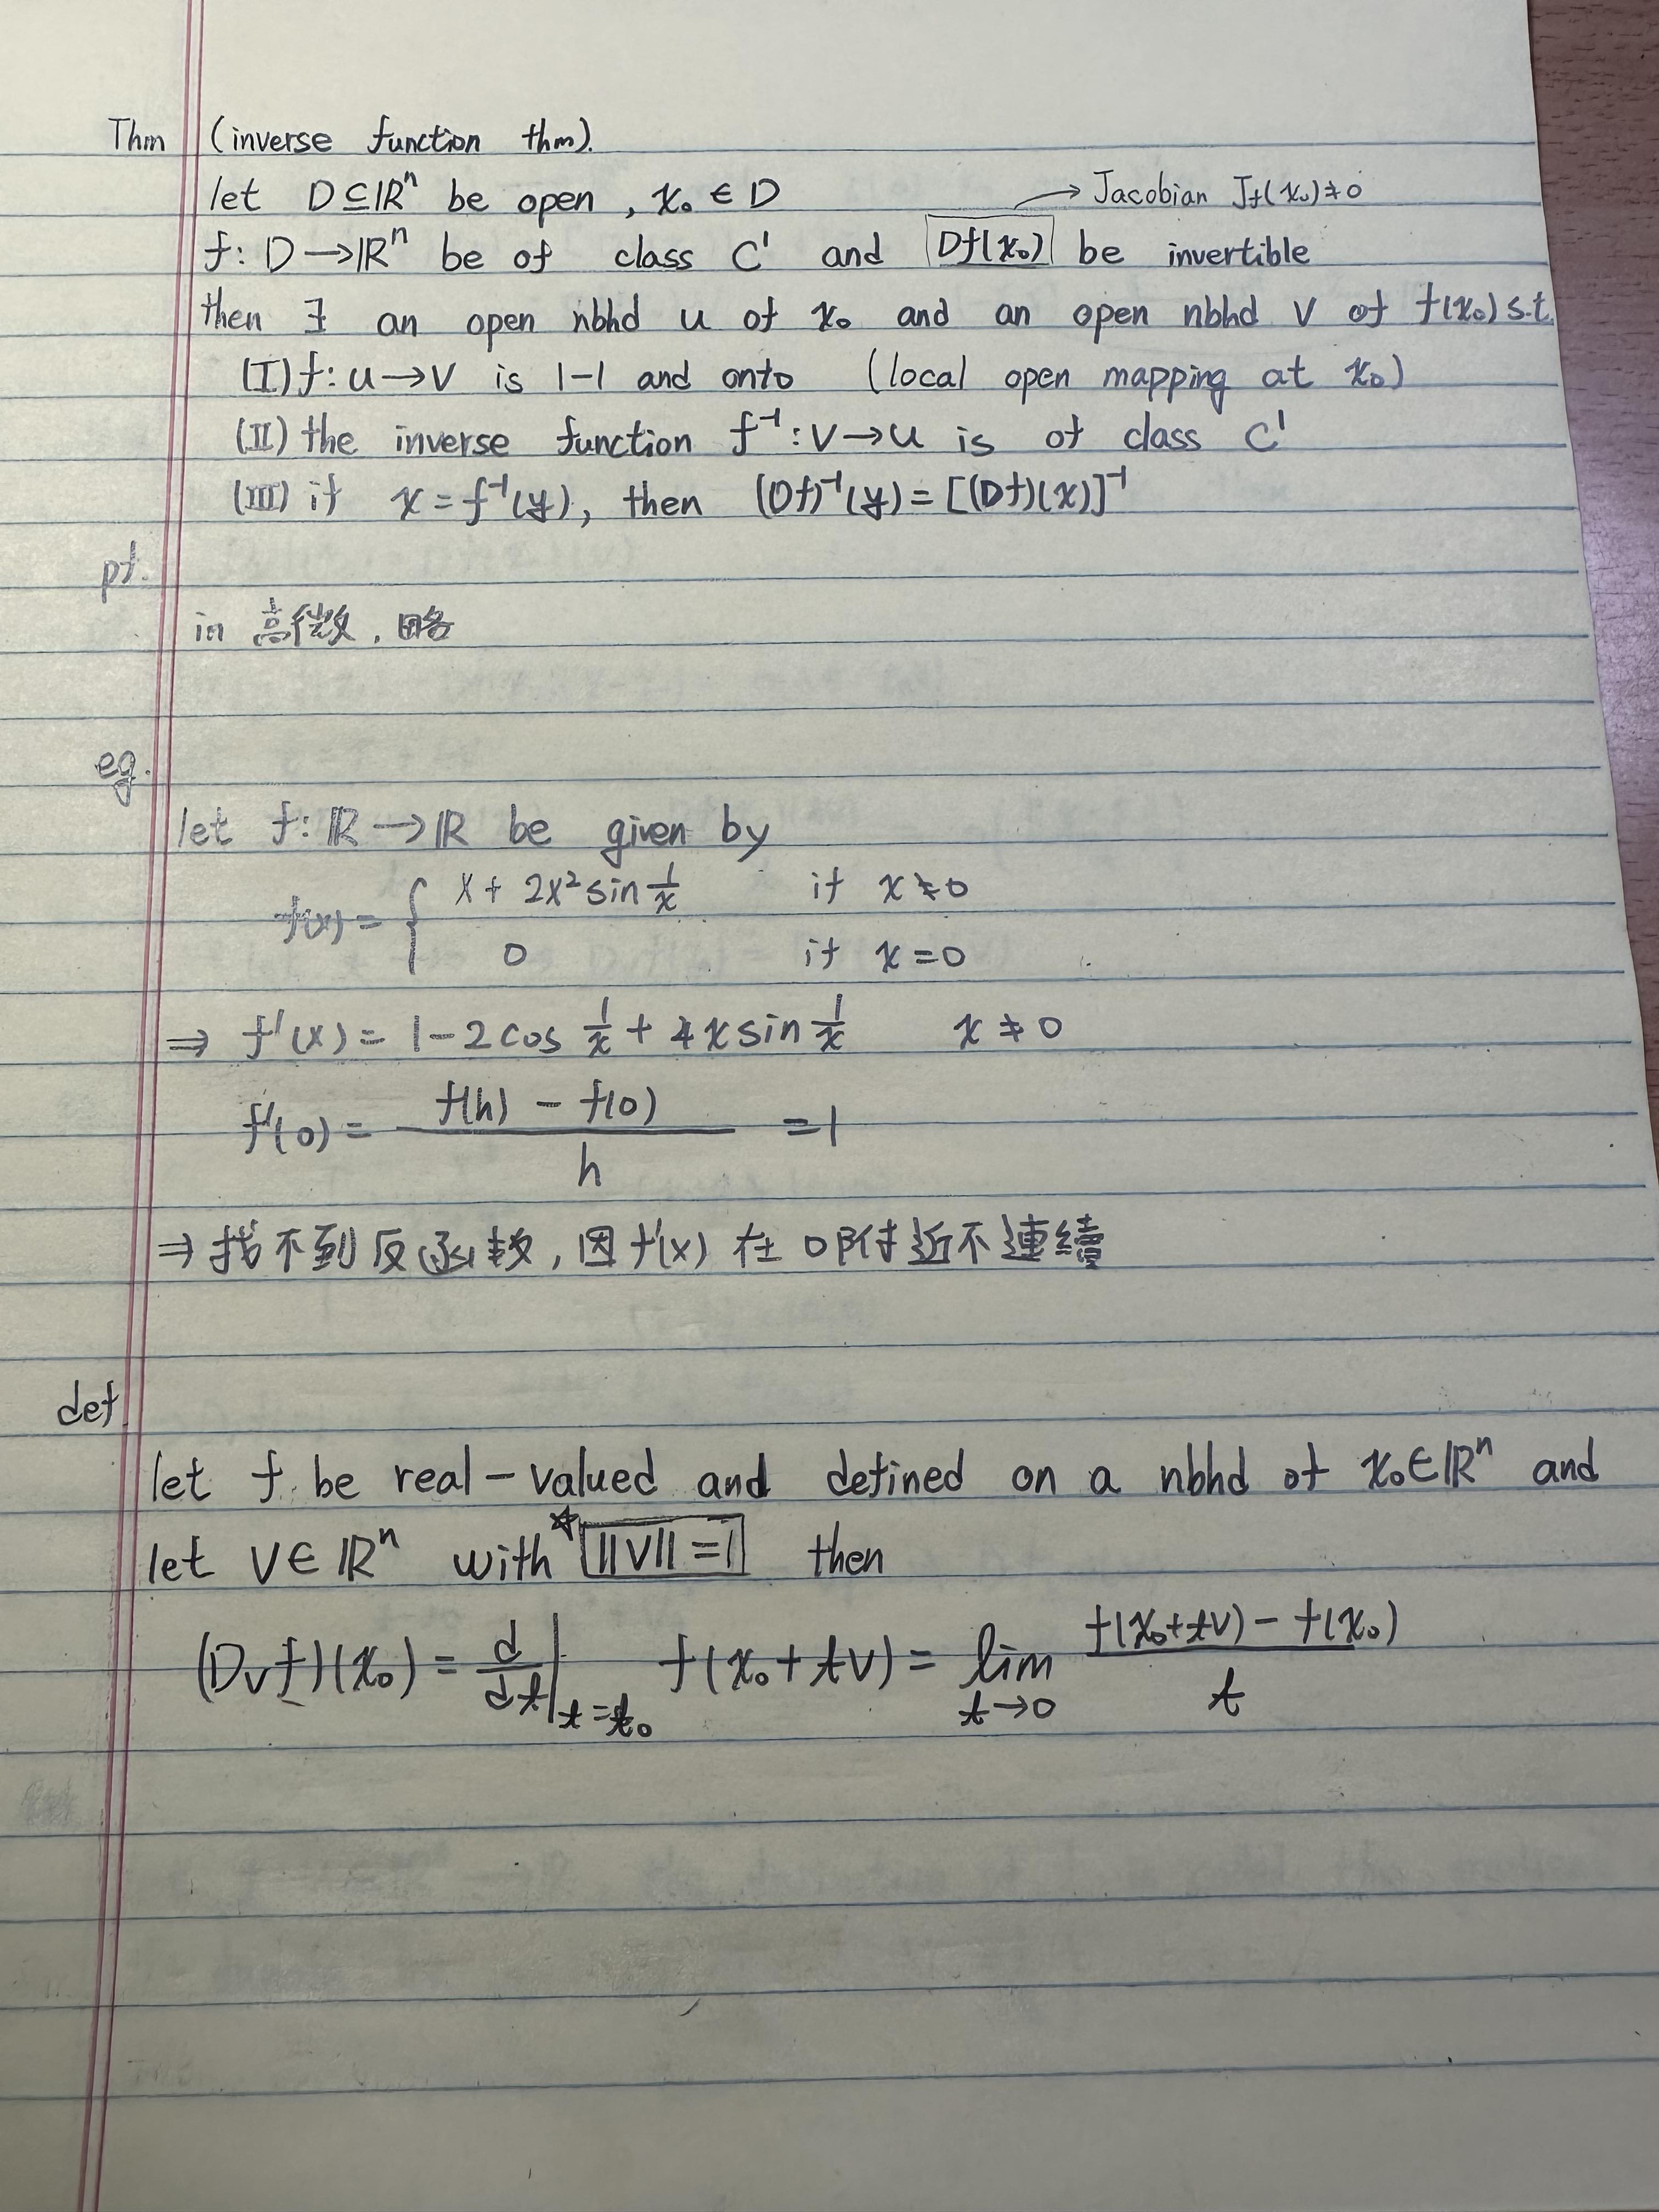 Thm (inverse function thm).
let D⊆ℝⁿ be open , x₀ ∈ D → Jacobian J_f(x₀)≠0
f: D→ℝⁿ be of class C' and Df(x₀) be invertible
then ∃ an open nbhd u of x₀ and an open nbhd V of f(x₀) s.t.
(I) f: u→V is 1-1 and onto (local open mapping at x₀)
(II) the inverse function f⁻¹: V→u is of class C'
(III) if x = f⁻¹(y), then (Df)⁻¹(y) = [(Df)(x)]⁻¹
pf.
in 高微, 略
eg.
let f: ℝ→ℝ be given by
f(x) = { x + 2x² sin 1/x if x≠0
0 if x=0
⇒ f'(x) = 1-2cos 1/x + 4x sin 1/x x≠0
f'(0) = (f(h) - f(0))/h =1
⇒ 找不到反函數, 因 f'(x) 在 0附近不連續
def
let f be real-valued and defined on a nbhd of x₀∈ℝⁿ and
let V∈ℝⁿ with *||V||=1 then
(D_V f)(x₀) = d/dt|_{t=t₀} f(x₀+tV) = lim_{t→0} (f(x₀+tV) - f(x₀))/t